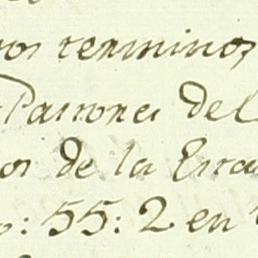 ros terminos
Patrones del
os de la Erra
o: 55: 2 en